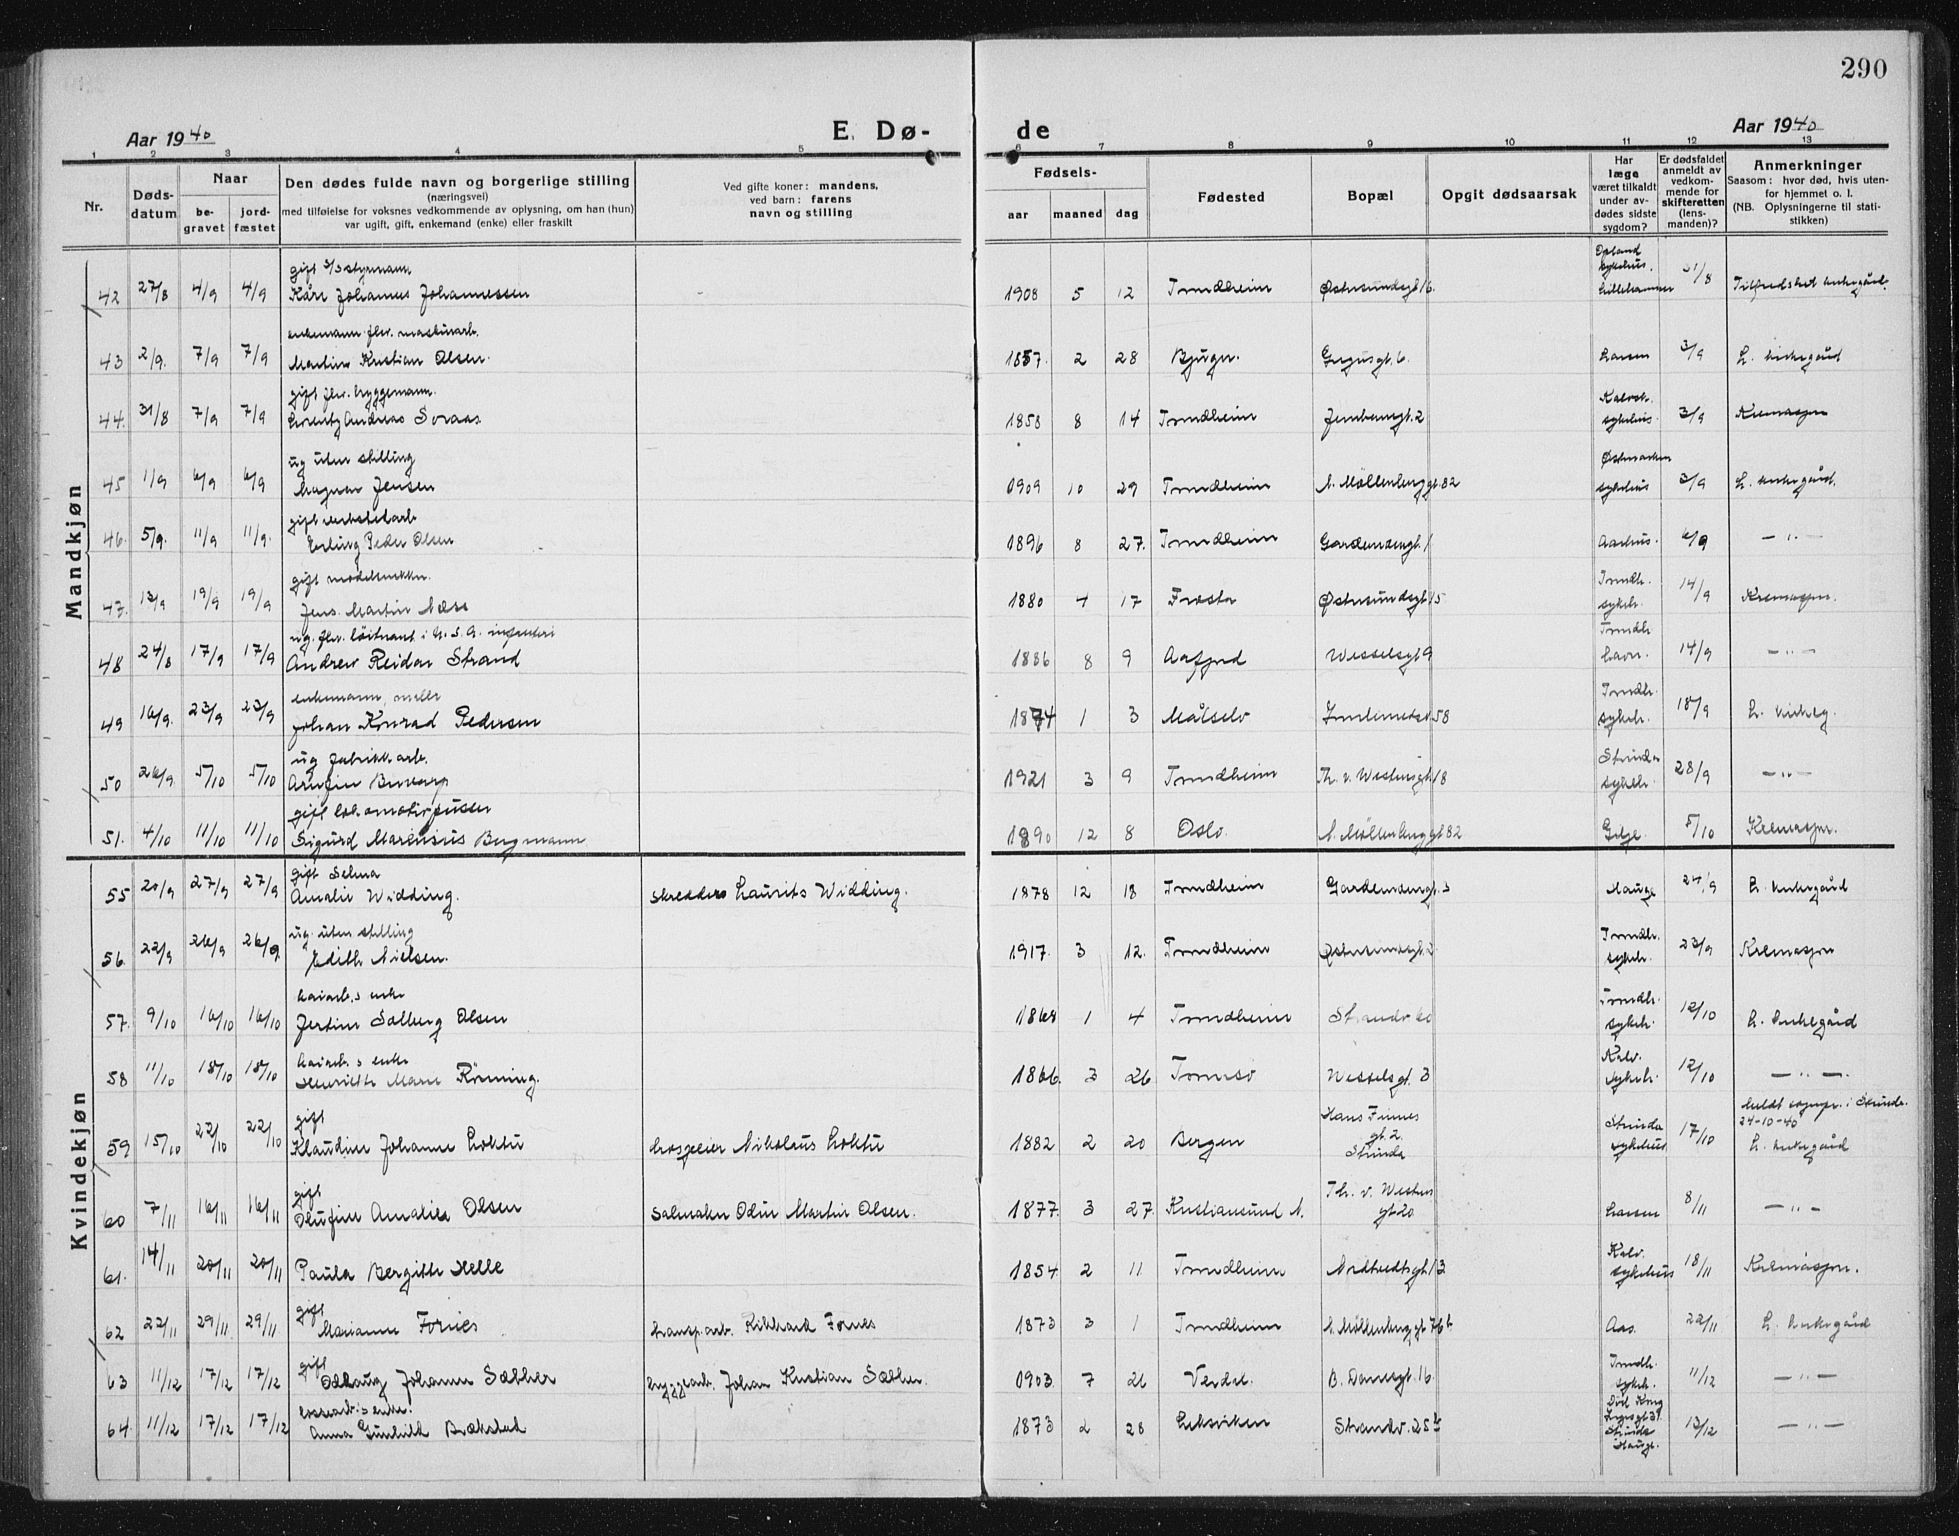 290
Aar 1940
E. Dø-
de
Aar 1940
1 2 3 4 5 6 7 8 9 10 11 12 13
Nr.
Døds-
datum
Naar
be-
gravet
jord-
fæstet
Den dødes fulde navn og borgerlige stilling
(næringsvei)
med tilføielse for voksnes vedkommende av oplysning, om han (hun)
var ugift, gift, enkemand (enke) eller fraskilt
Ved gifte koner: mandens,
ved barn: farens
navn og stilling
Fødsels-
aar
maaned
dag
Fødested
Bopæl
Opgit dødsaarsak
Har
læge
været tilkaldt
under av-
dødes sidste
sygdom?
Er dødsfaldet
anmeldt av
vedkom-
mende for
skifteretten
(lens-
manden)?
Anmerkninger
Saasom: hvor død, hvis uten-
for hjemmet o. l.
(NB. Oplysningerne til stati-
stikken)
Mandkjøn
gift styrmann
42 27/8 4/9 4/9 Kåre Johannes Johannessen 1908 5 12 Trondheim Østersundsgt 16. Opland sykehus. Lillehammer 31/8 Tilfredshet kirkegård.
enkemann fhv. maskinarb.
43 2/9. 7/9 7/9 Martin Kristian Olsen. 1857. 2 28 Bjugn. Gregusgt. 6. Larsen 3/9 L. kirkegård
gift fhv. bryggemann.
44. 31/8 7/9 7/9 Lorentz Andreas Soraas 1858 8 14 Trondheim Jernbanegt. 2 Kalvsk. sykehus 3/9 Kremasjon
ug uten stilling
45 1/9 6/9 6/9 Magnar Jensen 1909 10 29 Trondheim N. Møllenberggt 82 Østmarken sykehus 3/9 L. kirkegård.
gift verkstedarb
46. 5/9. 11/9 11/9. Erling Peder Olsen 1896 8 27. Trondheim Gardemoengt. 1 Aarhus. 6/9 — " —
gift modelsnekker.
47. 13/9 19/9 19/9 Jens Martin Næss 1880 4 17 Frosta Østersundsgt 15 Trondh. sykeh. 14/9 Kremasjon.
ug. fhv. löitnant i U.S.A. infanteri
48 24/8 17/9 17/9 Andrew Reidar Strand 1886 8 9 Aafjord Wesselsgt 9 Trondh havn. 14/9 — " —
enkemann, møller
49 16/9. 23/9 23/9 Johan Konrad Pedersen 1874 1 3 Målselv Innherredsv. 58 Trondh. sykeh. 18/9 L. kirkeg.
ug fabrikkarb.
50 26/9 5/10 5/10 Arnfinn 1921 3 9 Trondheim Th. v. Westensgt. 18 Strinda sykeh. 28/9 — " —
gift lokomotivpusser
51. 4/10 11/10 11/10 Sigurd Marensius Bergmann 1890 12 8 Oslo. N. Møllenberggt 82 5/10 Kremasjon.
Kvindekjøn
gift Selma
55 20/9 27/9 27/9 Amalie Widding. skredder Laurits Widding. 1878 12 18 Trondheim Gardemoengt. 3 Hauge 24/9 L. kirkegård
ug. uten stilling
56. 22/9 26/9 26/9 Edith Nielsen. 1917. 3 12. Trondheim Østersundsgt. 2 Trondh. sykeh. 23/9 Kremasjon
havarb.s enke
57. 9/10 16/10 16/10 Jertine Solberg Olsen 1864 1 4 Trondheim Strandv 60 Trondh. sykeh. 12/10 L. kirkegård
havarb.s enke
58 11/10 18/10 18/10 Henriette Marie Rönning. 1866. 3 26 Tromsö Wesselsgt. 3 Kalv. sykeh. 12/10 — " —
gift
59 15/10 22/10 22/10 Klaudine Johanne Loktu losgeier Nikolaus Loktu 1882 2 20 Bergen Hans Finnes gt. 2. Strinda Strinda sykehus 17/10 meldt sognepr. i Strinda. 24-10-40 L. kirkegård
gift
60 7/11 16/11 16/11 Olufine Amalie Olsen salmaker Odin Martin Olsen. 1877. 3 27. Kristiansund N. Th. v. Westens gt 20 Larsen 8/11 — " —
61. 14/11 20/11 20/11 Paula Bergitte Helle 1854. 2 11 Trondheim Nidtvedtsgt. 13 Kalv. sykehus 18/11 Kremasjon.
gift
62 22/11 29/11 29/11 Marianne Fornes transp.arb. Rikhard Fornes 1873 3 1 Trondheim N. Møllenberggt. 76b Aas. 22/11 L. kirkegård
gift
63 11/12 17/12 17/12 Odlaug Johanne Sæther bryggearb. Johan Kristian Sæther. 1903. 7 26 Verdal. B. Dons gt. 16. Trondh. sykeh. 11/12 — " —
enke.
64. 11/12 17/12 17/12 Anna Gunhild Brækstad 1873 2 28 Leksviken Strandv. 25b Död Kong gt 31 Strinda Hauge. 13/12 — " —